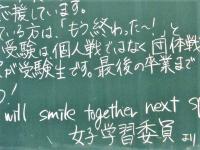 応援しています。
ている方は、「もう終わった～!」と
受験は個人戦ではなく団体戦
が受験生です。最後の卒業まで
う!
will smile together next sp
女子学習委員より